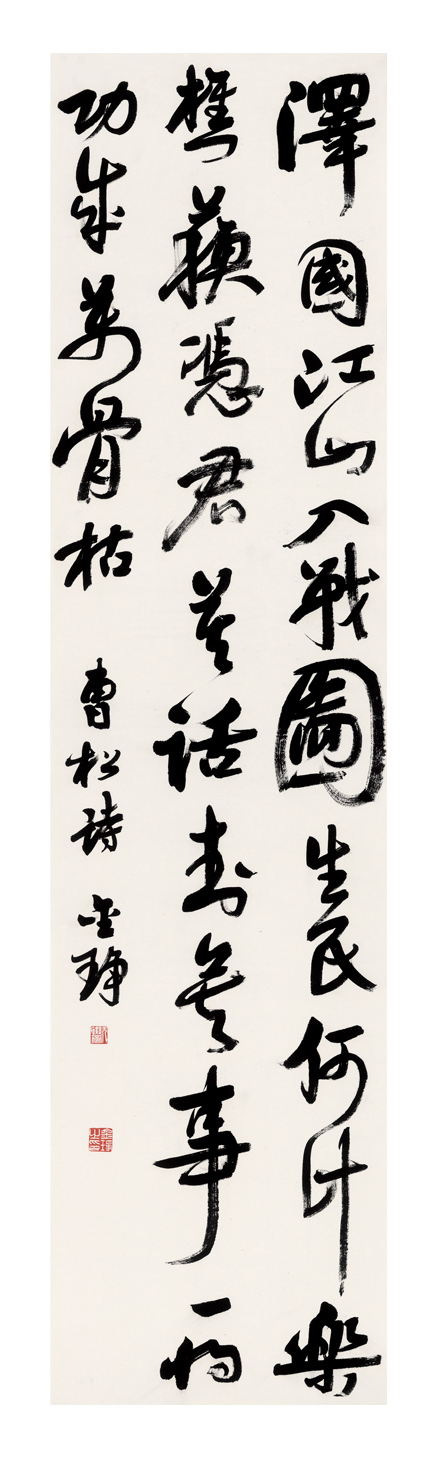 澤國江山入戰圖生民何計樂
樵蘇憑君莫話封侯事一將
功成萬骨枯 曹松詩 金琤